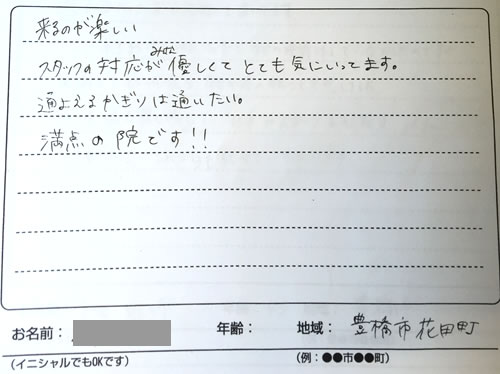 来るのが楽しい
スタッフの対応がみな優しくてとても気にいってます。
通よえるかぎりは通いたい。
満点の院です!!
お名前: 年齢: 地域: 豊橋市花田町
(イニシャルでもOKです) (例:●●市●●町)